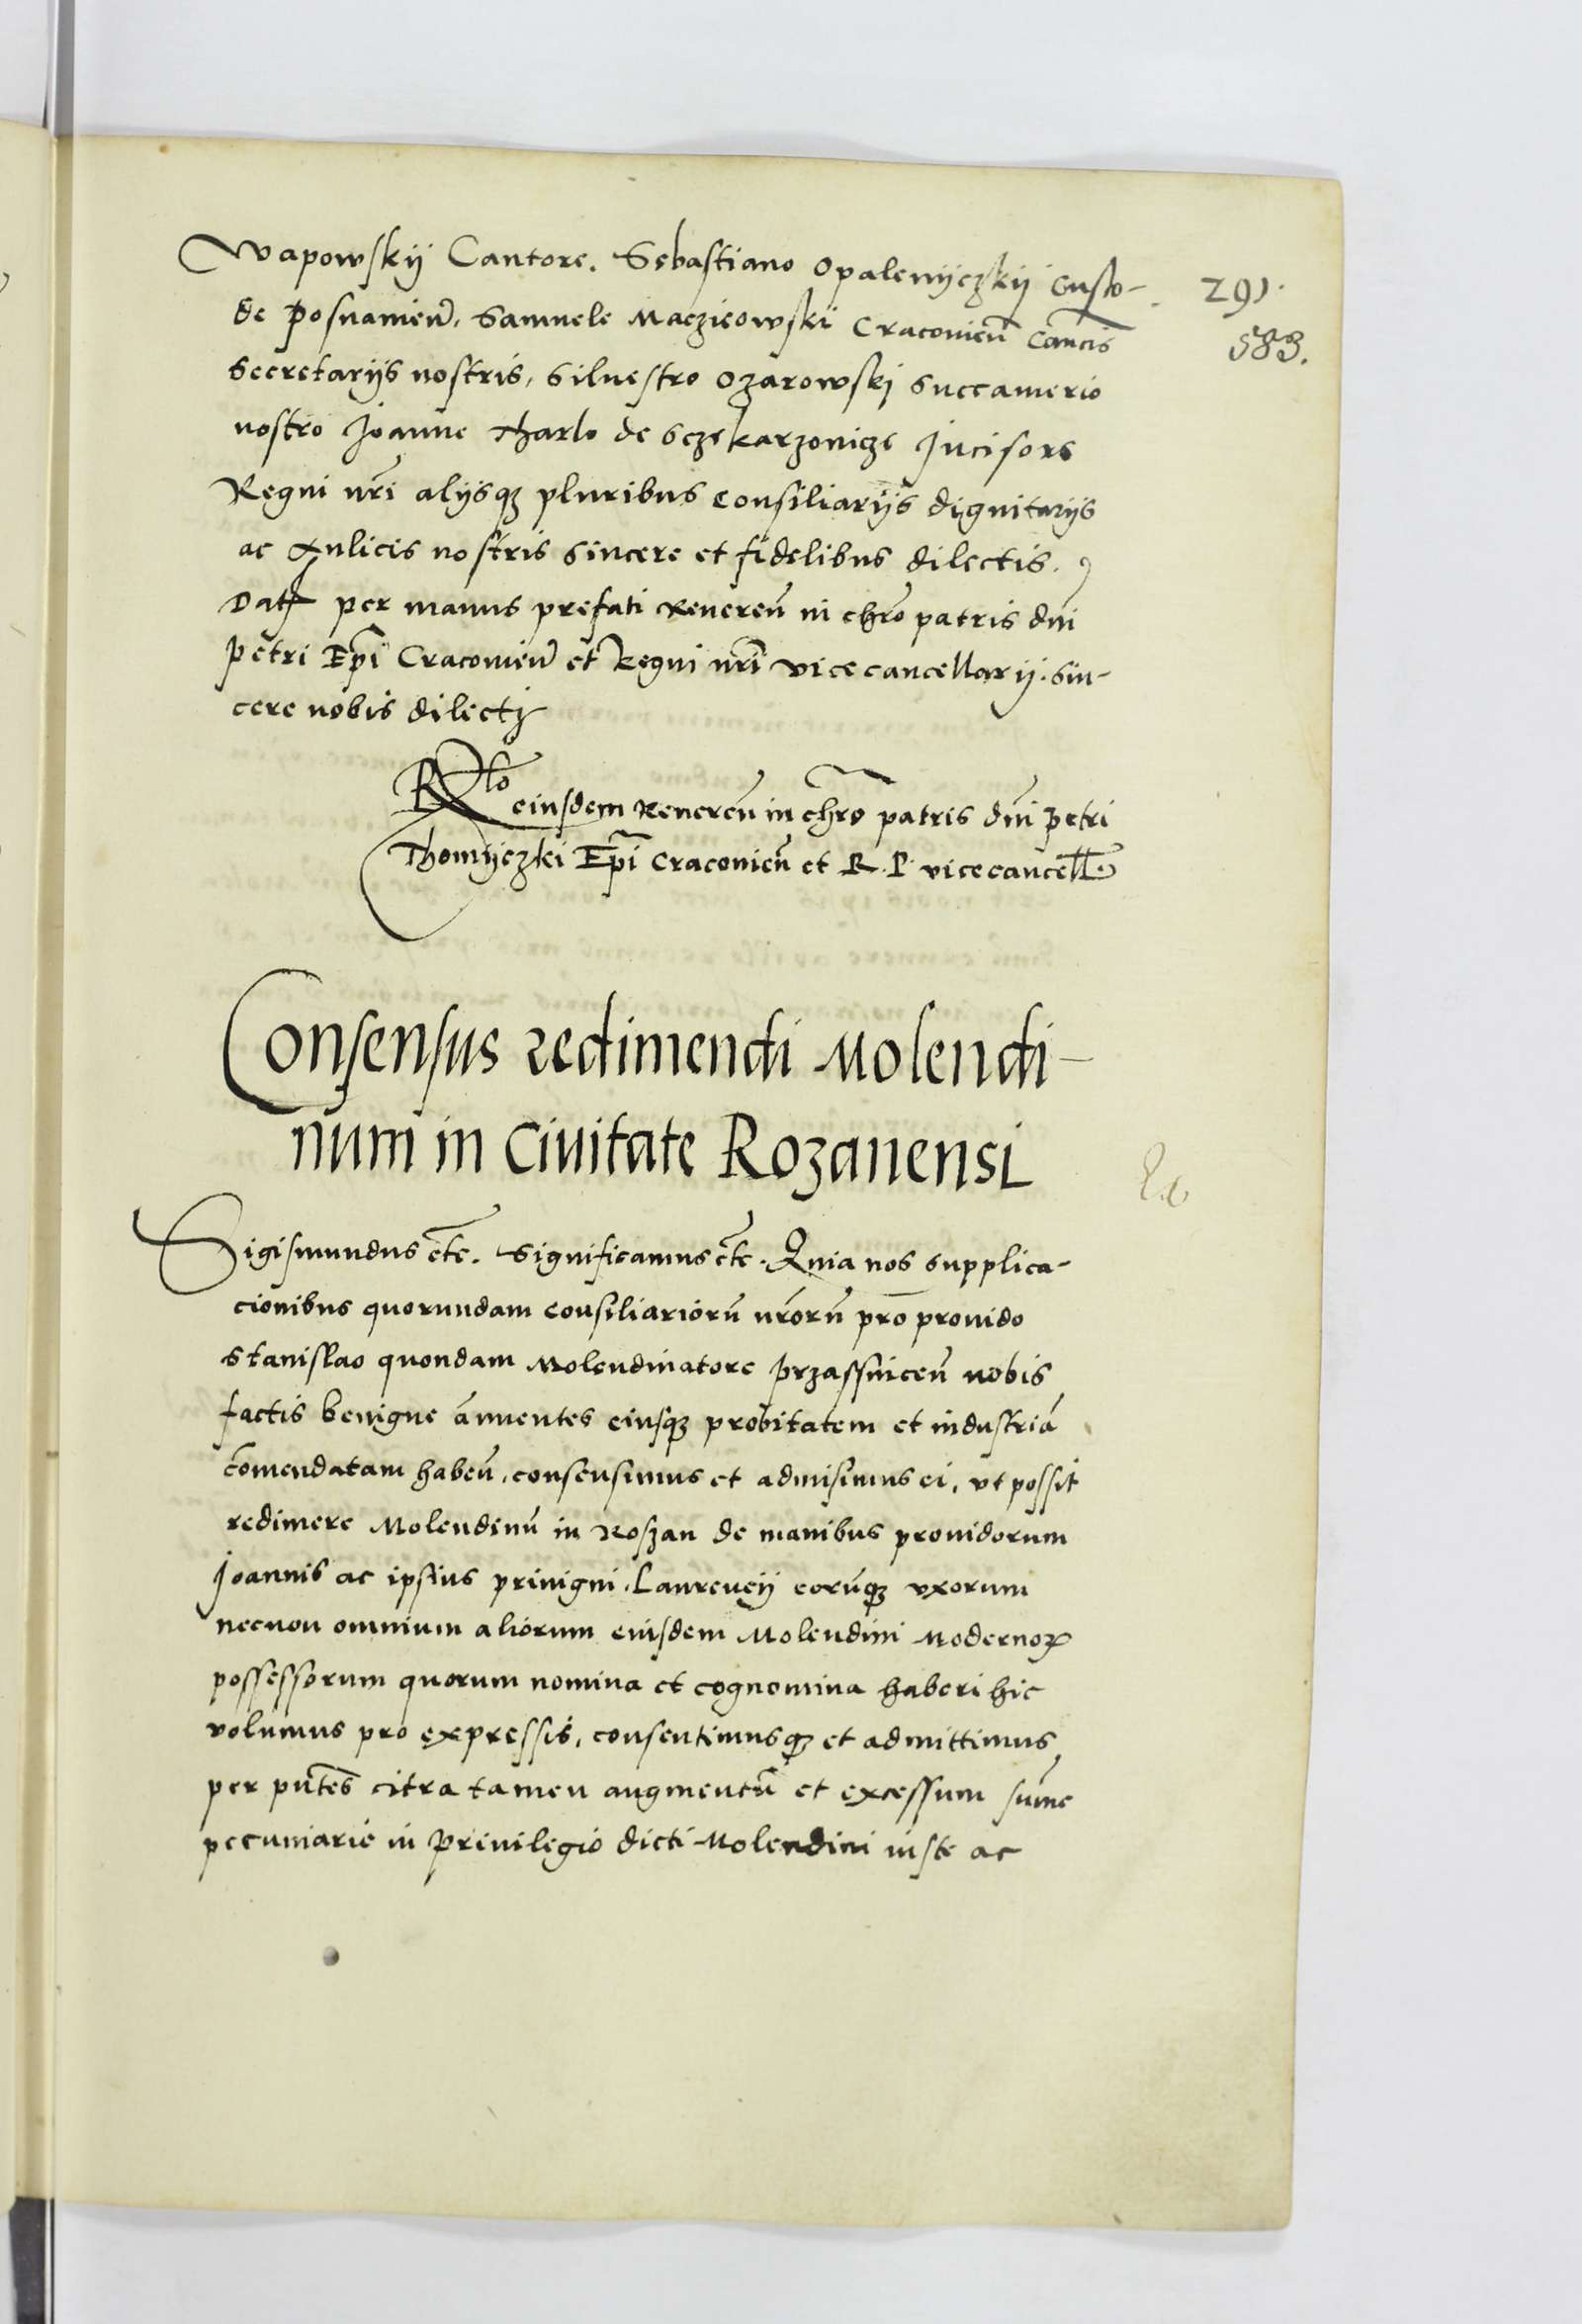 Wapowskij Cantore. Sebastiano Opalenijczkij Custo-
291.
583.
de Posnanień, Samuele Maczieowski Cracovień Cancis
Secretarijs nostris, Siluestro Ozarowskj Succamerio
nostro Joanne Tharlo de Sczekarzonicze Jncisore
Regni nr̃i alijsqz pluribus Consiliarijs dignitarijs
ac Aulicis nostris sincere et fidelibus dilectis.
Datȝ per manus prefati Reuereñ in chr̃o patris dñi
Petri Ep̃i Cracovieñ et Regni nr̃i vicecancellarij. sin-
cere nobis dilectj
Rlo
eiusdem Reuereñ in chr̃o patris dñi petri
Thomijczki Ep̃i Cracovieñ et R. P. vicecancell.
Consensus redimendi Molendi-
num in Ciuitate Rozanensi
Sigismundus etc̃. Significamus etc̃. Quia nos supplica-
cionibus quorundam consiliariorũ nr̃orũ pro prouido
Stanislao quondam Molendinatore Przassniceñ nobis
factis benigne ãnuentes eiusqz probitatem et industriã
com̃endatam habeñ, consensimus et admisimus ei, vt possit
redimere Molendinũ in Roszan de manibus prouidorum
Joannis ac ipsius priuigni, Laurencij eorũqz vxorum
necnon omnium aliorum eiusdem Molendini Modernoꝝ
possessorum quorum nomina et cognomina haberi hic
volumus pro expressis, consentimusqz et admittimus
per pñtes citra tamen augmentũ et excessum sum̃e
pecuniarie in Priuilegio dicti Molendini iuste ac